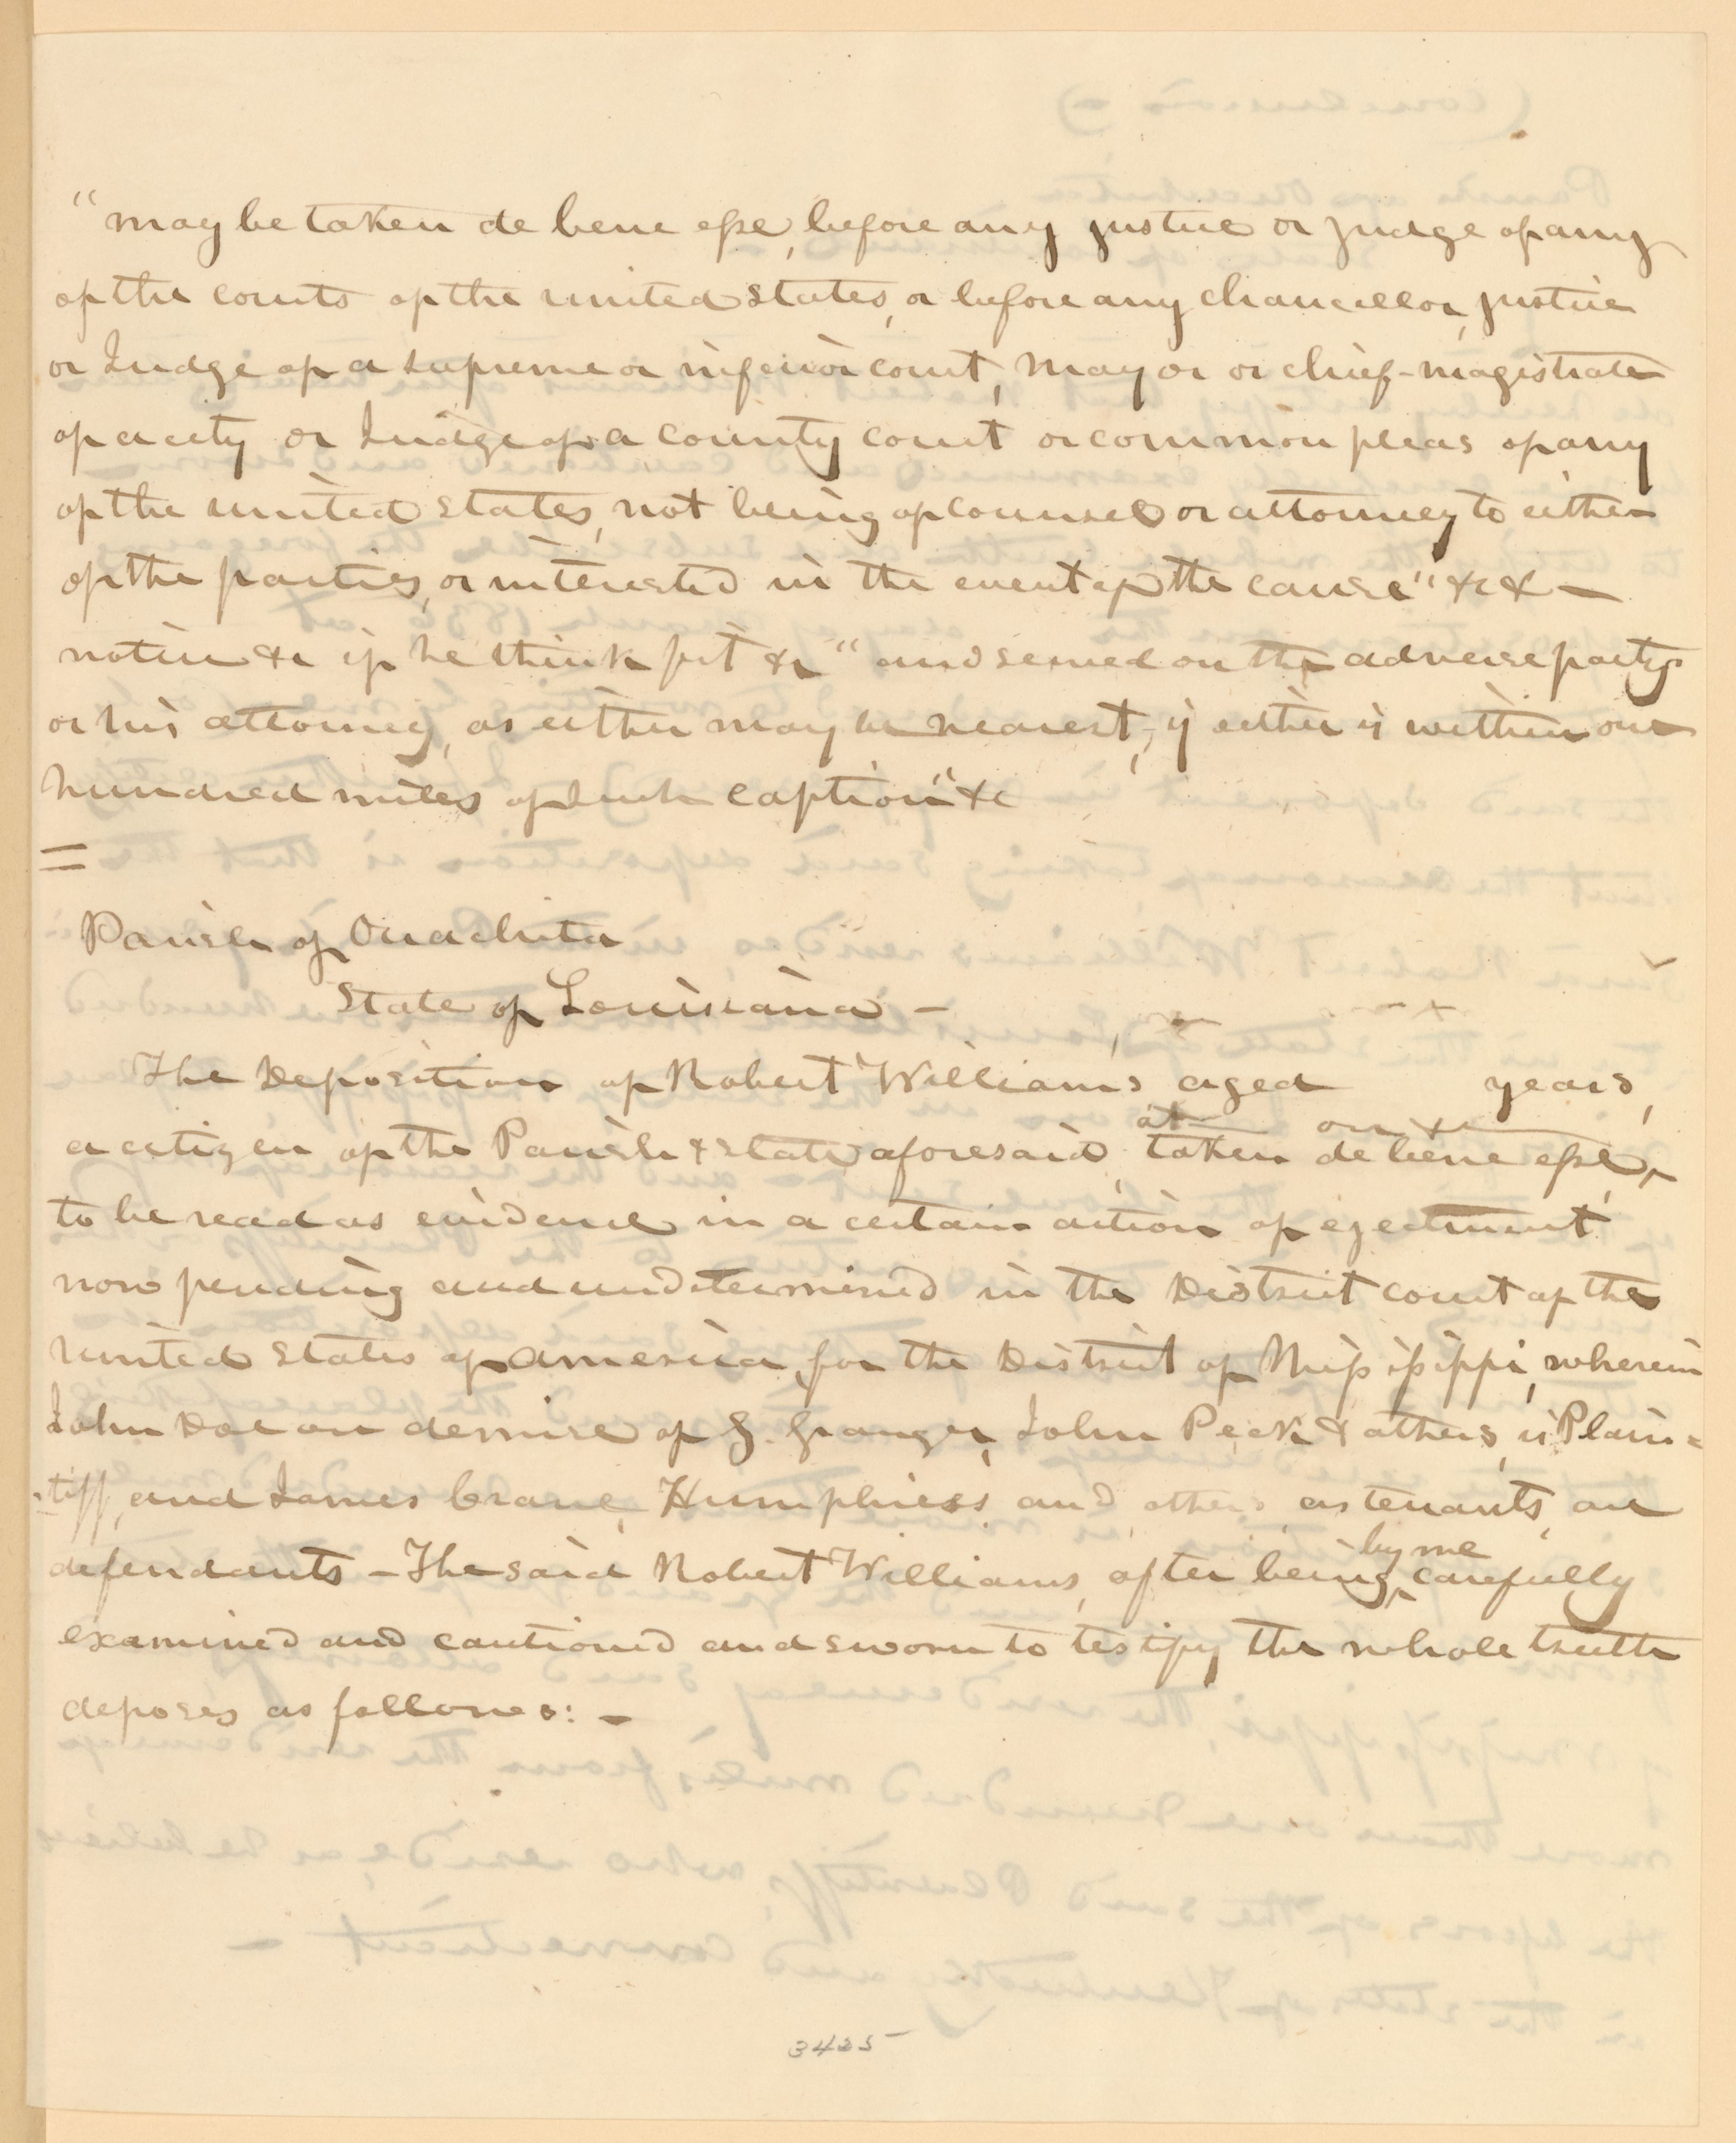 "may be taken de bene esse, before any justice or judge of any
of the courts of the united states, or before any chancellor, justice
or Judge of a supreme or inferior court, mayor or chief-magistrate
of a city or Judge of a county court or common pleas of any
of the united states, not being of counsel or attorney to either
of the parties, or interested in the event of the cause" &c & —
notice &c if he think fit &c "and served on the adverse party
or his attorney, as either may be nearest, if either is within one
hundred miles of such caption" &c
=
Parish of Ouachita
State of Louisiana —
The Deposition of Robert Williams, aged years,
at on &c
a citizen of the Parish & state aforesaid, taken de bene esse,
to be read as evidence in a certain action of ejectment
now pending and undetermined in the District court of the
united states of america, for the District of Missisippi, wherein
John Doe on demise of G. Granger, John Peck & others, is Plain=
=tiff, and James Crane, Humphriess and others as tenants, are
by me
defendants — The said Robert Williams, after being carefully
examined and cautioned and sworn to testify the whole truth
deposes as follows: —
3425